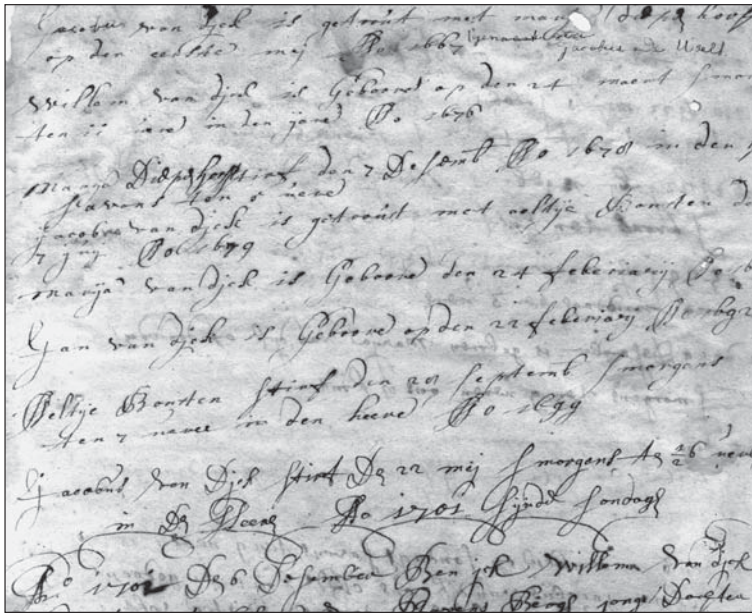 Jacobus van Djck is getrout met marija Diepen hoof
op den eerste meij Ao 1667
Jacobus
Willem van Djck is Geboore op den 24 maert smor
ten ii uere in den jare Ao 1676
marija Diepenhorst stirf den 7 Desemb Ao 1678 in den
savens ten 8 uere
jacobus van djck is getrout met aeltje Bonsten de
7 juij Ao 1679
marija van djck is Geboore den 24 febriarij Ao
Jan van djck is Geboore op den 22 febriarij Ao 1692
Aeltije Bonsten stirf den 28 septemb smorgens
ten 7 uere in den heere Ao 1699
Jacobus van Djck stirf De 22 meij smorgens te ½ 6 uere
in De Heere Ao 1701 sijnde sondagh
Ao 1702 De 6 Desember Ben jck Willem van djck
jonge Doghter